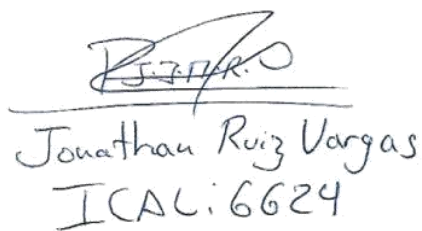 Jonathan Ruiz Vargas
ICAL: 6624